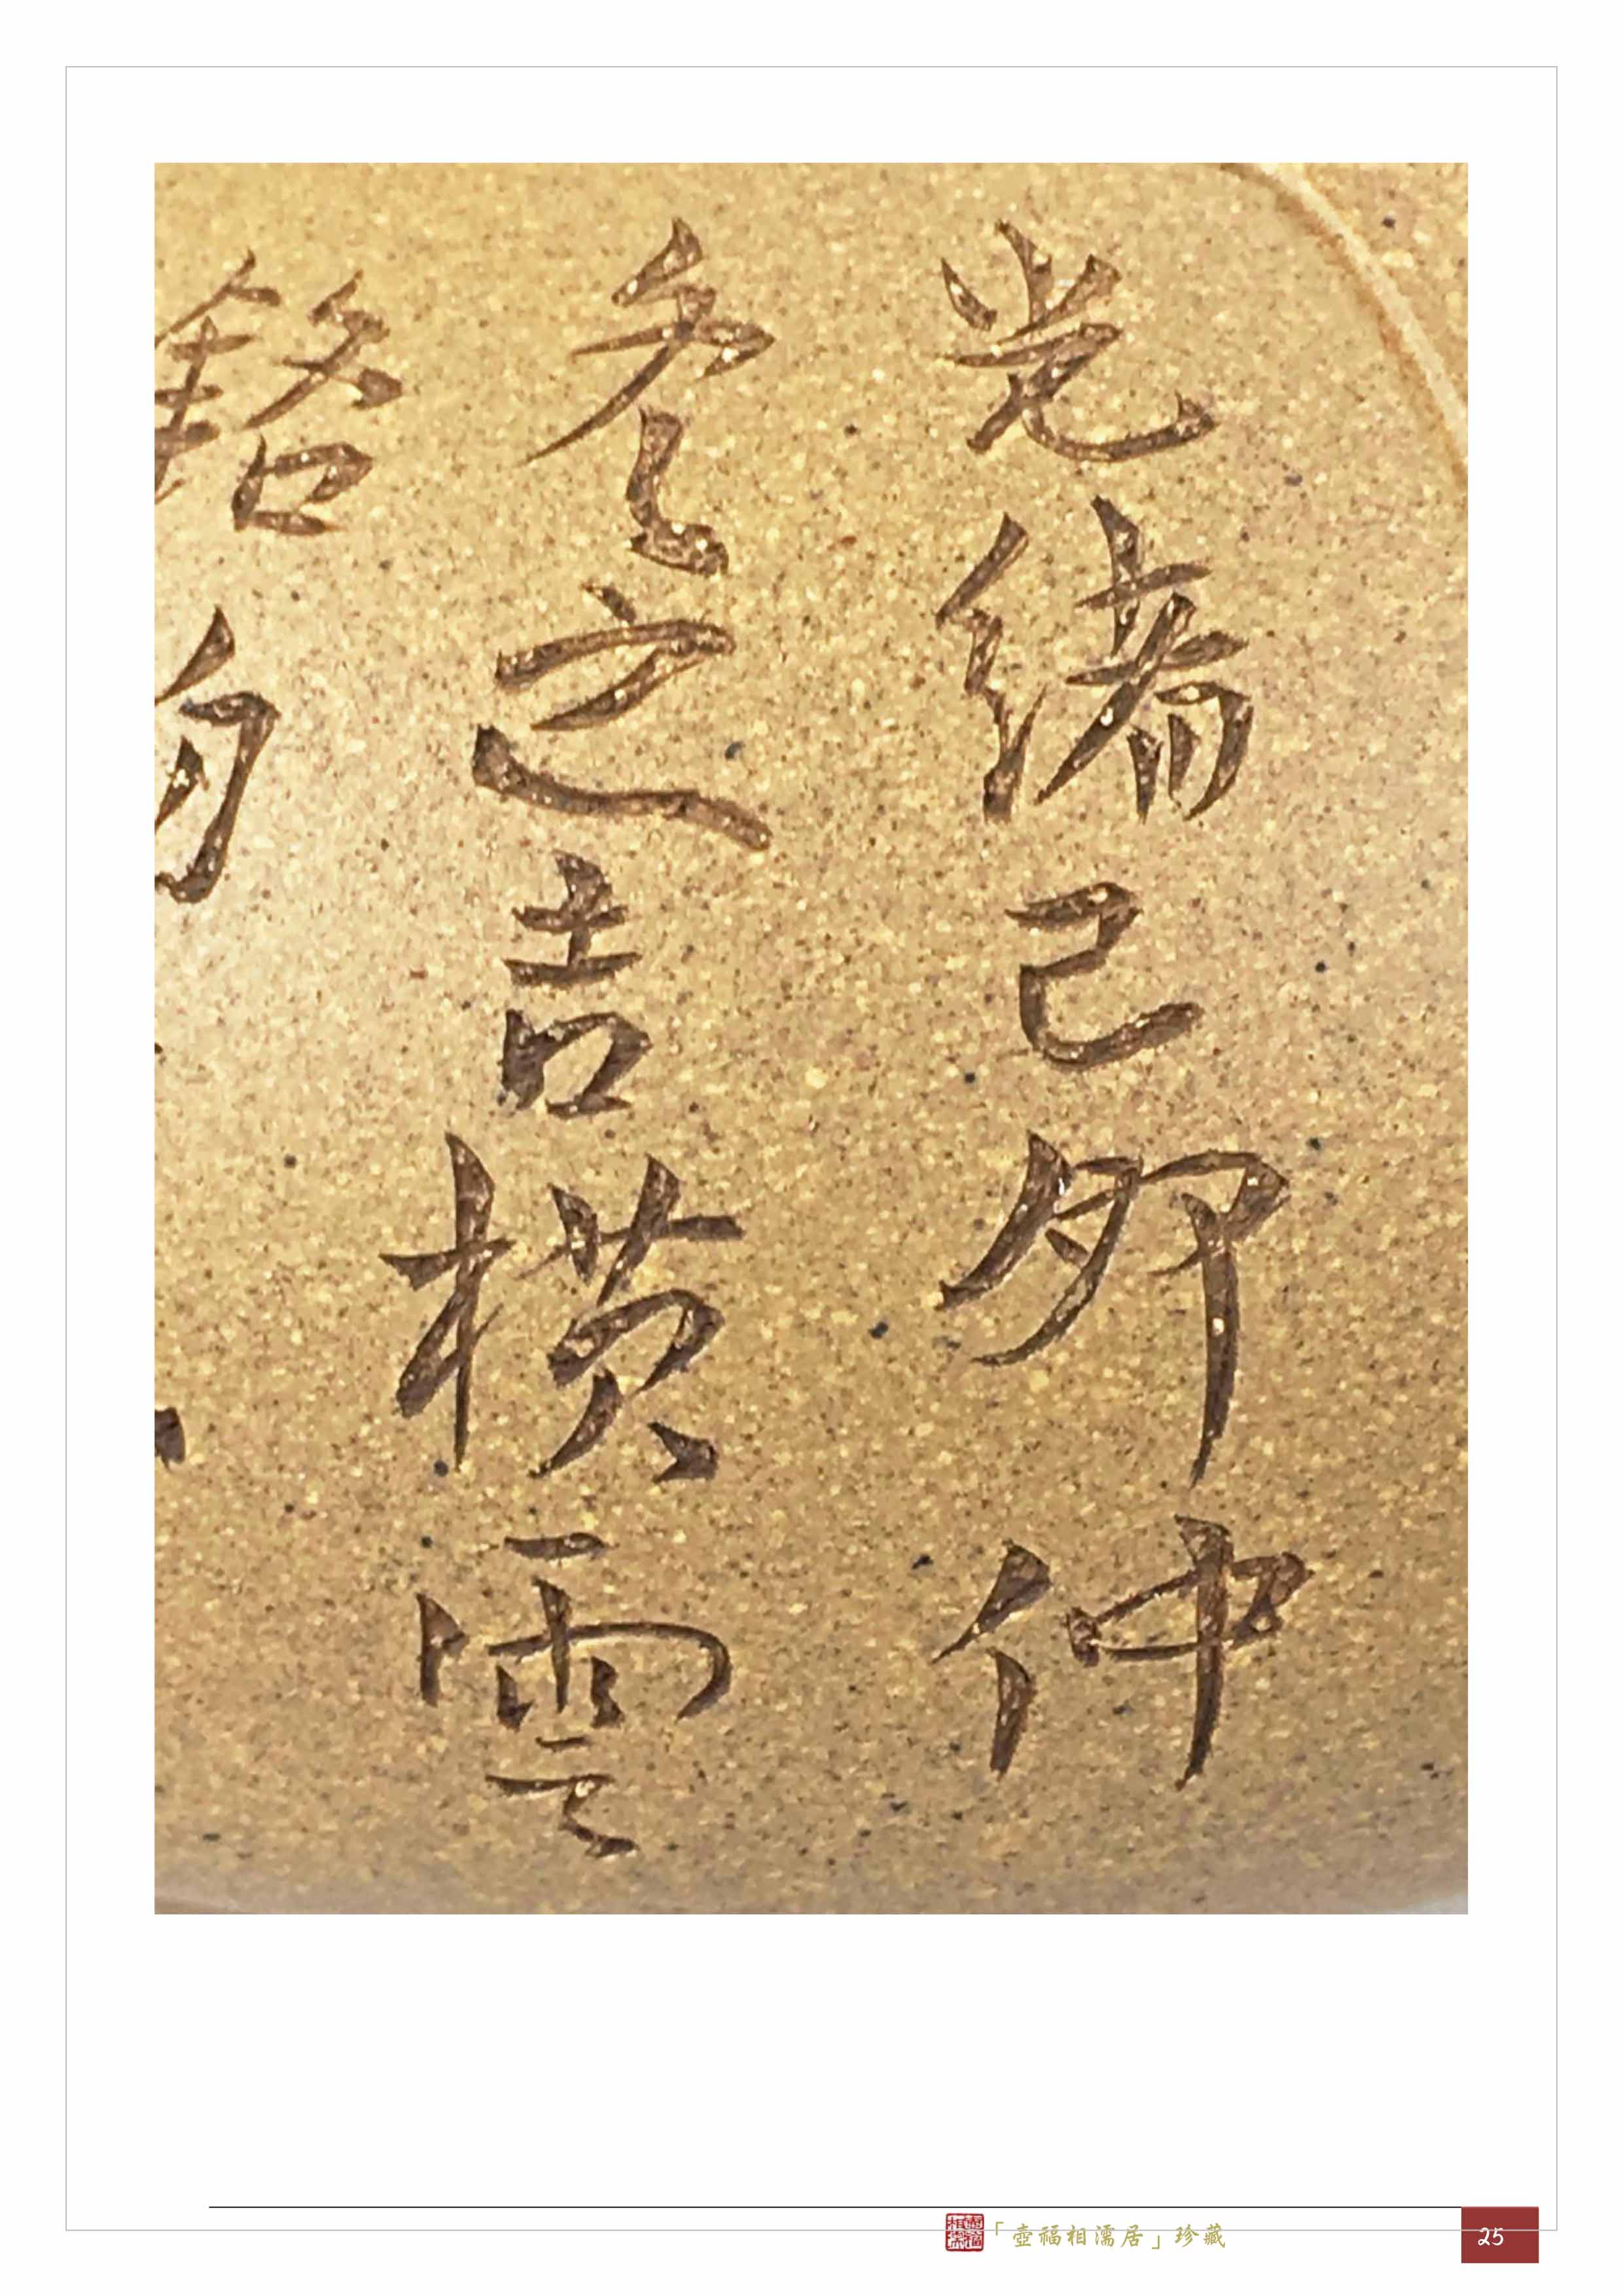 光緒己卯仲
冬之吉横雲
銘
「壺福相濡居」珍藏
25